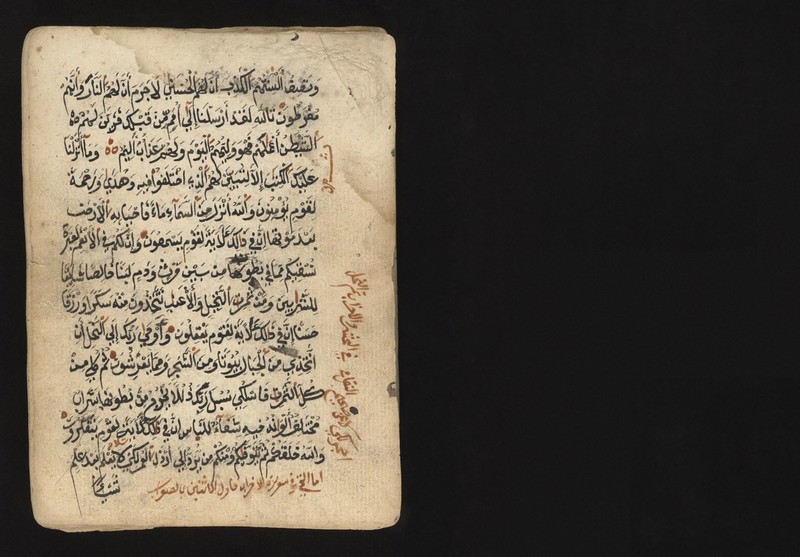 وتصف ألسنتهم الكذب أن لهم الحسنى لا جرم أن لهم النار وأنهم
مفرطون تالله لقد أرسلنا إلى أمم من قبلك فزين لهم
الشيطن أعملهم فهو وليهم اليوم ولهم عذاب أليم وما أنزلنا
عليك الكتب إلا لتبين لهم الذي اختلفوا فيه وهدى ورحمة
لقوم يؤمنون والله أنزل من السماء ماء فاحيا به الأرض
بعد موتها إن في ذلك لآية لقوم يسمعون وإن لكم في الأنعم لعبرة
نسقيكم مما في بطونه من بين فرث ودم لبنا خالصا سائغا
للشربين ومن ثمرت النخيل والأعنب تتخذون منه سكرا ورزقا
حسنا إن في ذلك لآية لقوم يعقلون وأوحى ربك إلى النحل أن
اتخذي من الجبال بيوتا ومن الشجر ومما يعرشون ثم كلي من
كل الثمرت فاسلكي سبل ربك ذللا يخرج من بطونها شراب
مختلف ألوانه فيه شفاء للناس إن في ذلك لآية لقوم يتفكرون
والله خلقكم ثم يتوفيكم ومنكم من يرد إلى أرذل العمر لكي لا يعلم بعد علم
شيئا